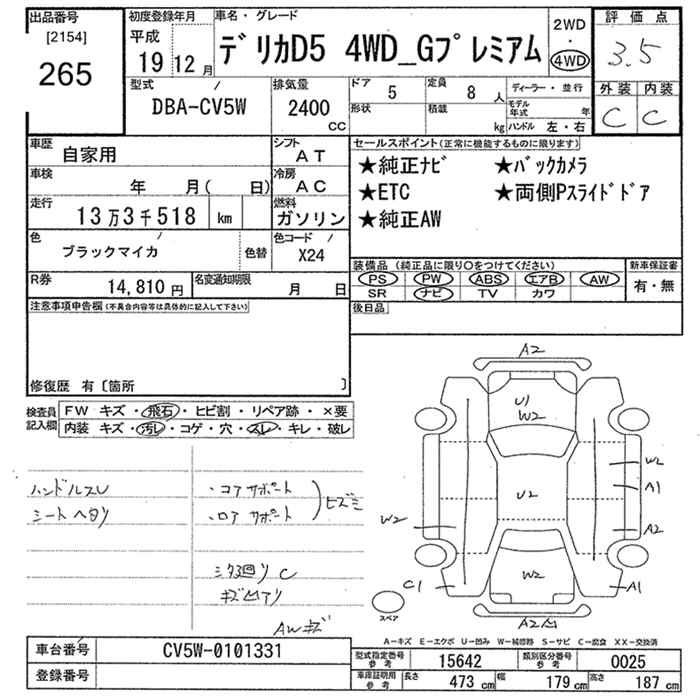 出品番号 [2154] 265
初度登録年月 平成 19 12月
車名・グレード デリカD5 4WD_Gプレミアム
2WD・4WD
評価点 3.5
外装 C 内装 C
型式 DBA-CV5W
排気量 2400 CC
ドア 5
定員 8 人
形状
積載 kg
ディーラー・並行
モデル年式 年
ハンドル 左・右
車歴 自家用
シフト AT
車検 年 月( 日)
冷房 AC
走行 13万3千518 km
燃料 ガソリン
色 ブラックマイカ
色替
色コード X24
R券 14,810円
名変通知期限 月 日
セールスポイント(正常に機能するものに限ります)
★純正ナビ ★バックカメラ
★ETC ★両側Pスライドドア
★純正AW
装備品(純正品に限り○をつけてください)
PS PW ABS エアB AW
SR ナビ TV カワ
新車保証書 有・無
後日品
注意事項申告欄(不具合内容等は具体的に記入して下さい)
修復歴 有〔箇所 〕
検査員記入欄
FW キズ・飛石・ヒビ割・リペア跡・×要
内装 キズ・汚レ・コゲ・穴・スレ・キレ・破レ
ハンドルスレ
シートヘタリ
・コアサポート
・ロアサポート
ヒズミ
シタ廻りC
キズ凹アリ
AWキズ
A2
U1
W2
W2
A1
U2
W2
A2
W2
C1
A1
A2凹
スペア
A−キズ E−エクボ U−凹み W−補修跡 S−サビ C−腐食 XX−交換済
車台番号 CV5W-0101331
登録番号
型式指定番号 参考 15642
類別区分番号 参考 0025
車庫証明用 参考 長さ 473 cm 幅 179 cm 高さ 187 cm